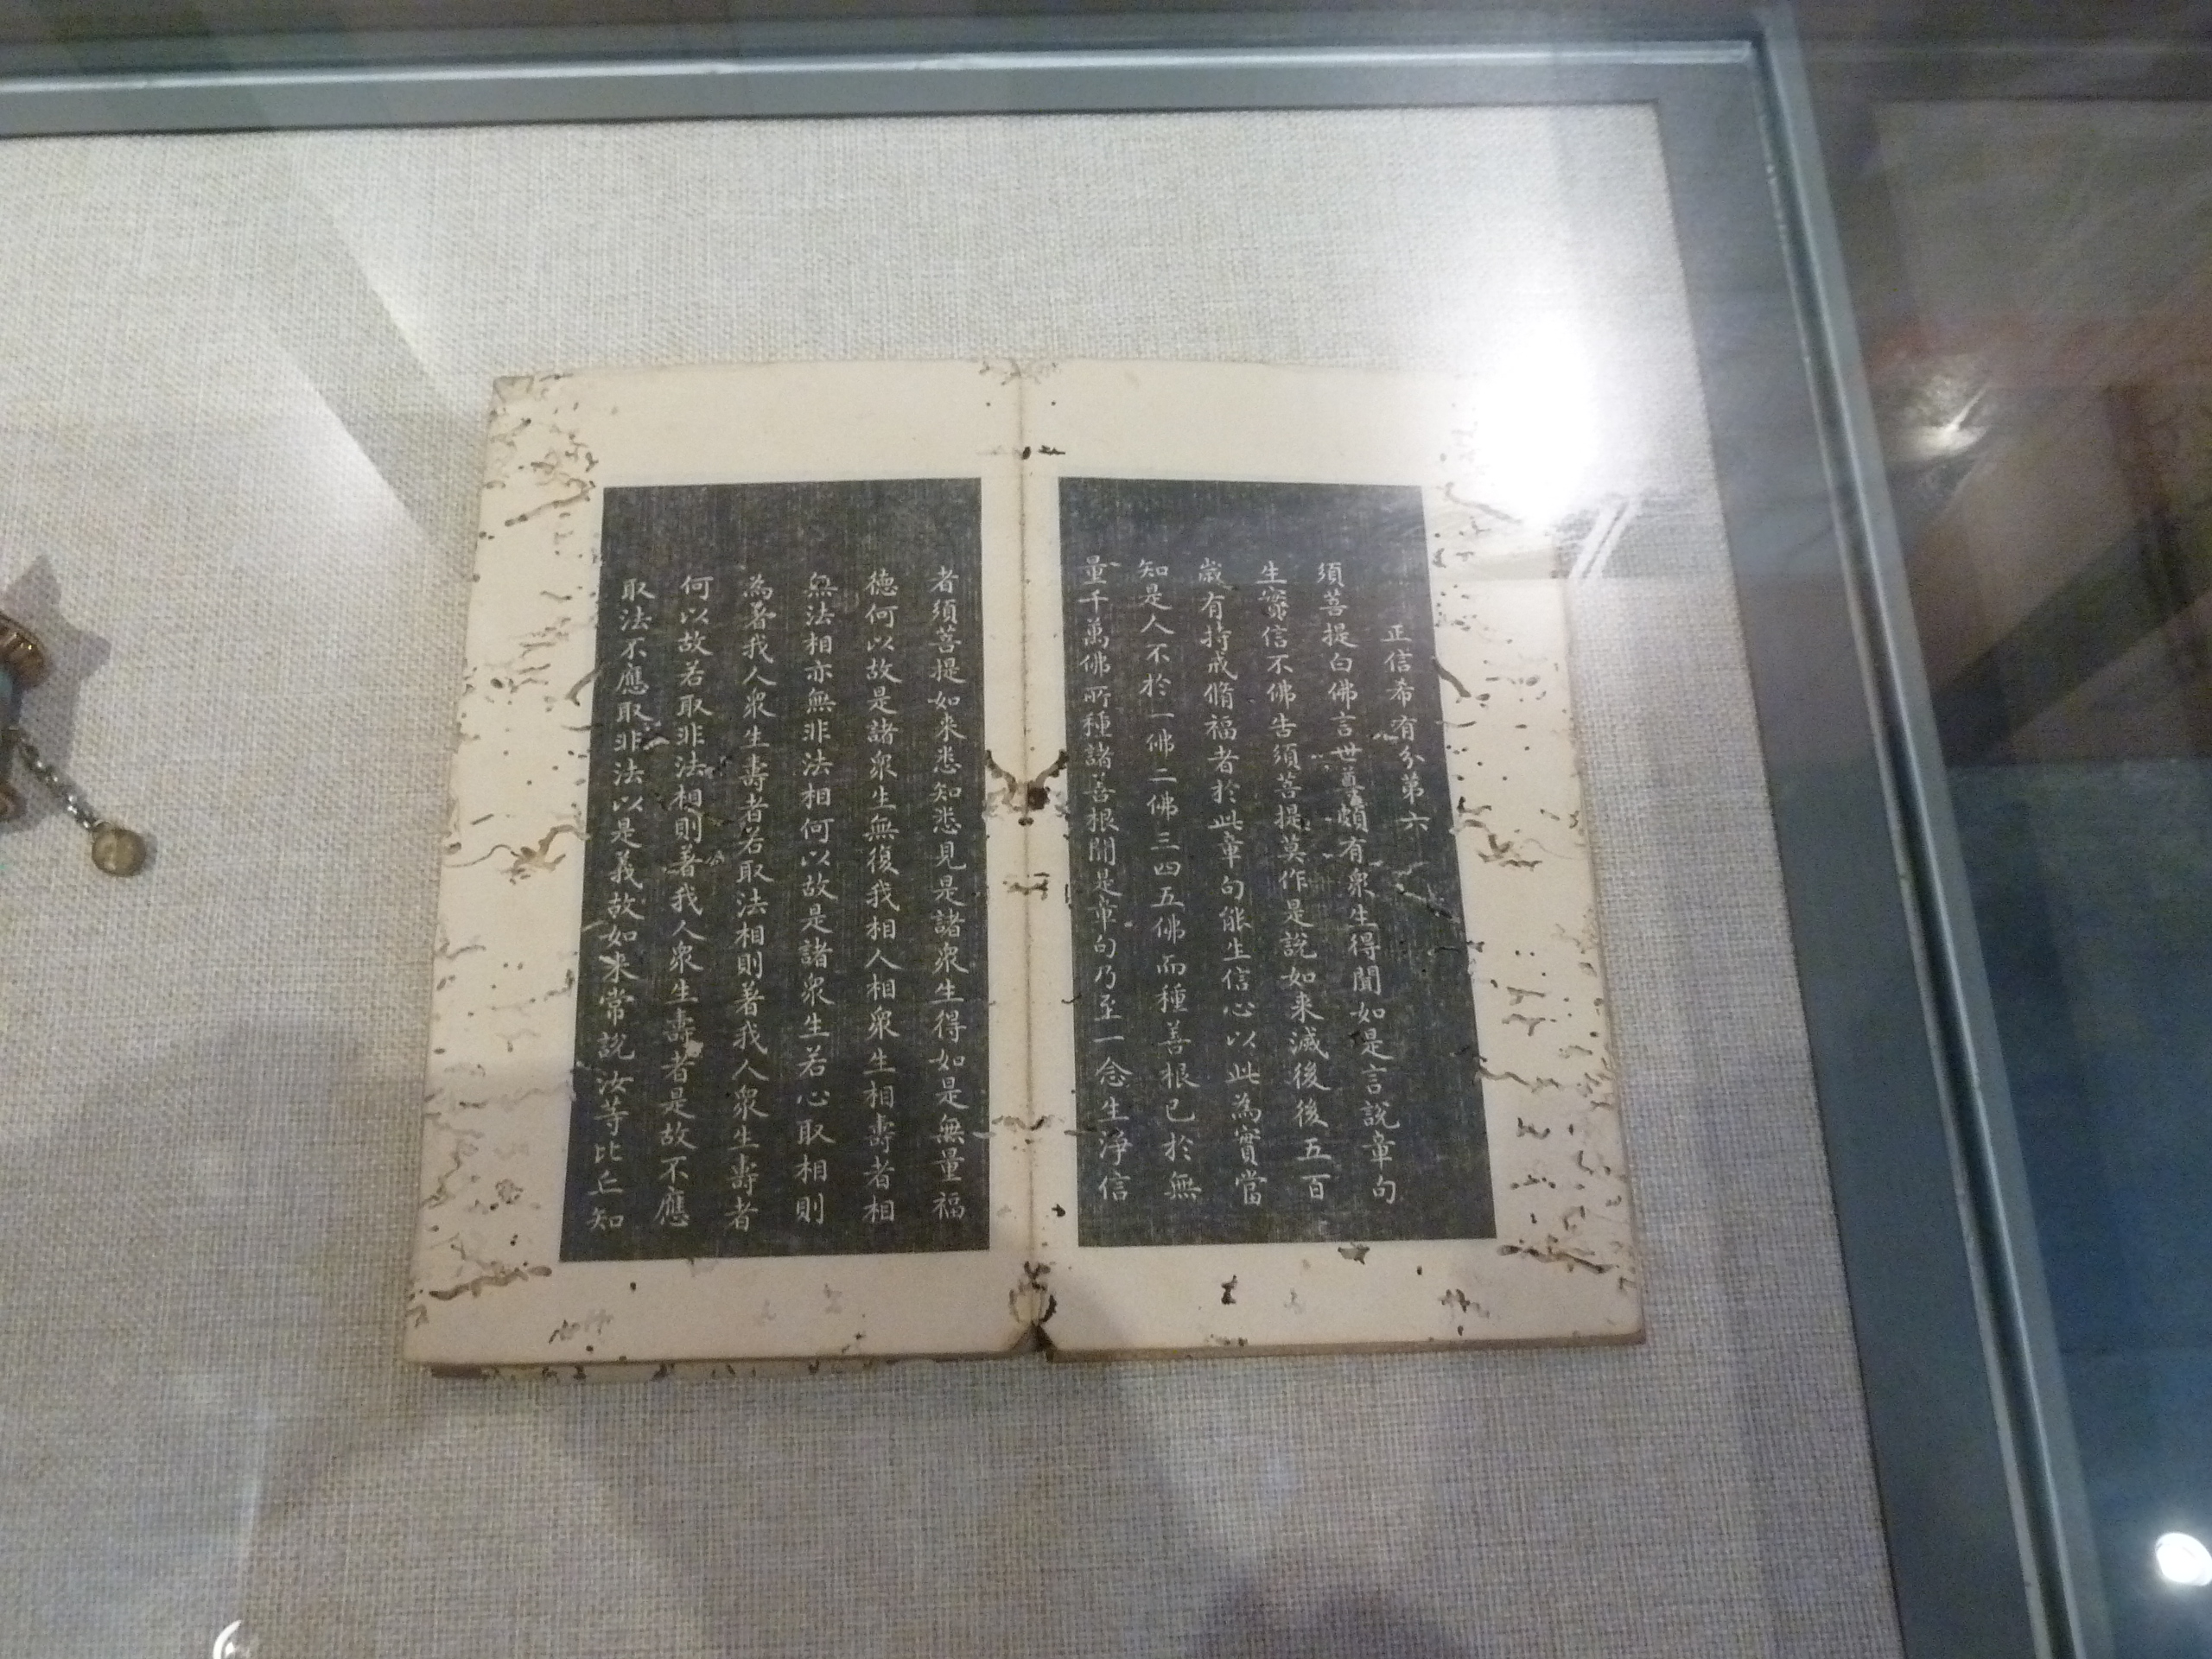 正信希有分第六
須菩提白佛言世尊頗有衆生得聞如是言說章句
生實信不佛告須菩提莫作是說如来滅後後五百
歲有持戒脩福者於此章句能生信心以此為實當
知是人不於一佛二佛三四五佛而種善根已於無
量千萬佛所種諸善根聞是章句乃至一念生淨信
者須菩提如来悉知悉見是諸衆生得如是無量福
德何以故是諸衆生無復我相人相衆生相壽者相
無法相亦無非法相何以故是諸衆生若心取相則
為著我人衆生壽者若取法相則著我人衆生壽者
何以故若取非法相則著我人衆生壽者是故不應
取法不應取非法以是義故如来常說汝等比丘知